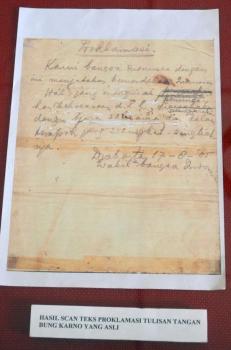 Proklamasi.
Kami bangsa Indonesia dengan
ini menjatakan kemerdekaan Indonesia
Hal2 jang mengenai
d.l.l.
dengan tjara saksama dan dalam
tempoh jang sesingkat-singkat
nja.
Djakarta 17-8-'05
Wakil2 bangsa Indonesia
HASIL SCAN TEKS PROKLAMASI TULISAN TANGAN
BUNG KARNO YANG ASLI